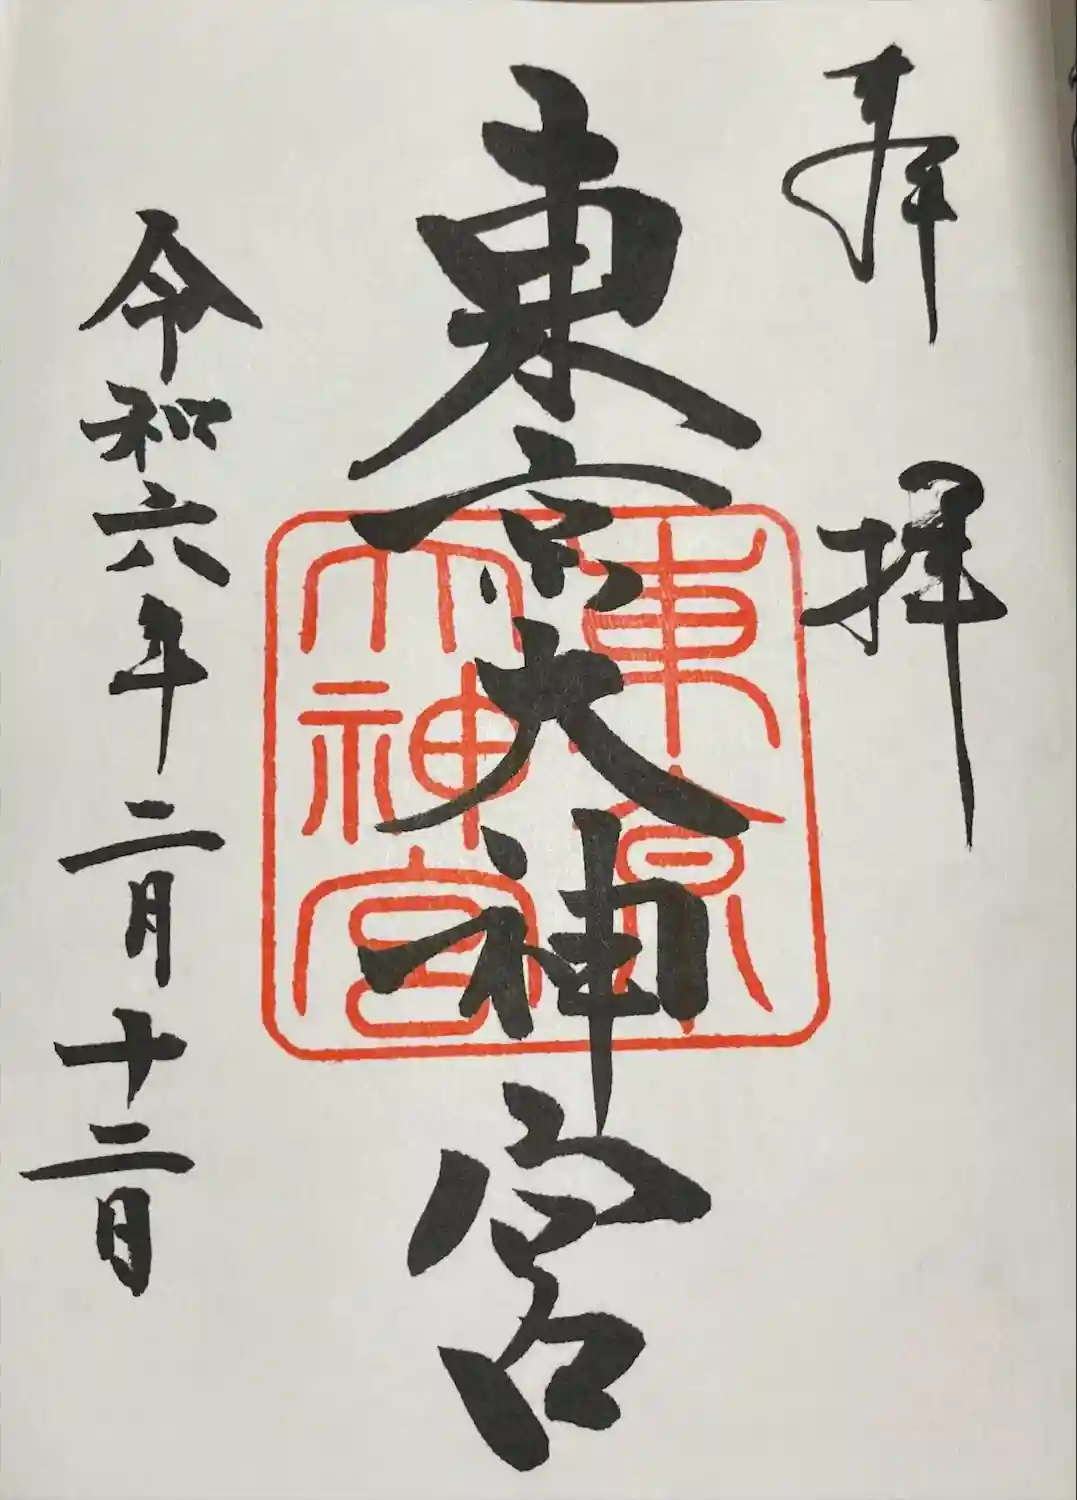 奉拝
東京大神宮
東京大神宮
令和六年二月十二日